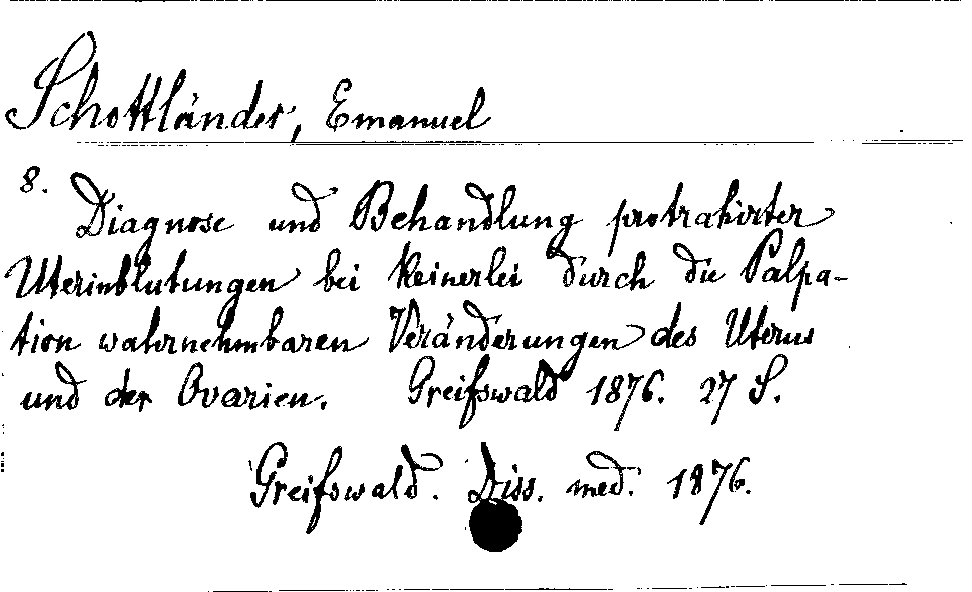 Schottländer, Emanuel
8. Diagnose und Behandlung protrahirter
Uterinblutungen bei keinerlei durch die Palpa-
tion wahrnehmbaren Veränderungen des Uterus
und der Ovarien. Greifswald 1876. 27 S.
Greifswald. Diss. med. 1876.